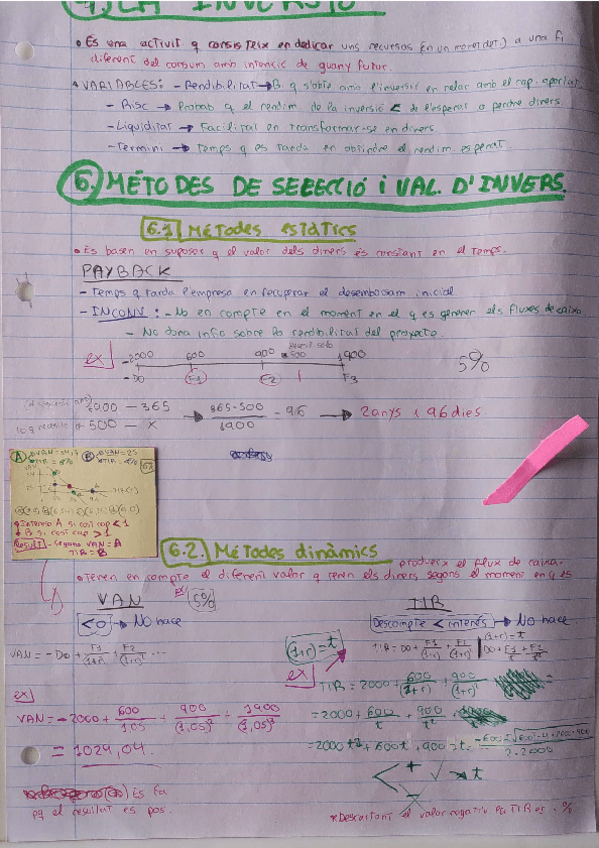 LA INVERSIÓ
• És una activit q consisteix en dedicar uns recursos (en un moment det.) a una fi
diferent del consum amb intenció de guany futur.
• VARIABLES: - Rendibilitat → B q s'obté amb l'inversió en relac amb el cap. aportat
- Risc → Probab q el rendim. de la inversió < de l'esperat o perdre diners
- Liquiditat → Facilitat en transformar-se en diners
- Termini → Temps q es tarda en obtindre el rendim. esperat
6. MÉTODES DE SELECCIÓ i VAL. D'INVERS.
6.1 Métodes estàtics
• Es basen en suposar q el valor dels diners és constant en el temps.
PAYBACK
- Temps q tarda l'empresa en recuperar el desembossam inicial
- INCONV: - No en compte el moment en el q es generen els fluxes de caixa
- No dona info sobre la rendibilitat del proyecte.
ex -2000 600 900 500 1900 5%
- D0 F1 F2 F3
1900 - 365 → 365·500 / 1900 = 96 → 2 anys i 96 dies.
500 - x
A B
Interés A si cost cap < 1
B si cost cap > 1
Result - Segons VAN = A
TIR = B
6.2. Métodes dinàmics
produeix el flux de caixa.
• Tenen en compte el diferent valor q tenen els diners segons el moment en q es
VAN ex 5% TIR
<0 → No hace Descompte < interés → No hace
VAN = -D0 + F1/(1+r) + F2/(1+r)² ... (1+r)=t TIR = D0 + F1/(1+r) + F2/(1+r)² (1+r)=t D0 + F1/t + F2/t²
ex TIR = 2000 + 600/(1+r) + 900/(1+r)² =
ex VAN = -2000 + 600/1,05 + 900/(1,05)² + 1900/(1,05)³ = 2000 + 600/t + 900/t²
= 1024,04. = 2000t² + 600t + 900 = t =
< + ✓ → t
-
Es fa
pq el resultat es pos. *Descartant el valor negatiu la TIR es %